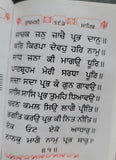 ਜਾਚਕ ਜਨੁ ਜਾਚੈ ਪ੍ਰਭ ਦਾਨੁ ॥
ਕਰਿ ਕਿਰਪਾ ਦੇਵਹੁ ਹਰਿ ਨਾਮੁ ॥
ਸਾਧ ਜਨਾ ਕੀ ਮਾਗਉ ਧੂਰਿ ॥
ਪਾਰਬ੍ਰਹਮ ਮੇਰੀ ਸਰਧਾ ਪੂਰਿ ॥
ਸਦਾ ਸਦਾ ਪ੍ਰਭ ਕੇ ਗੁਨ ਗਾਵਉ ॥
ਸਾਸਿ ਸਾਸਿ ਪ੍ਰਭ ਤੁਮਹਿ ਧਿਆਵਉ ॥
ਚਰਨ ਕਮਲ ਸਿਉ ਲਾਗੈ ਪ੍ਰੀਤਿ ॥
ਭਗਤਿ ਕਰਉ ਪ੍ਰਭ ਕੀ ਨਿਤ ਨੀਤਿ ॥
ਏਕ ਓਟ ਏਕੋ ਆਧਾਰੁ ॥